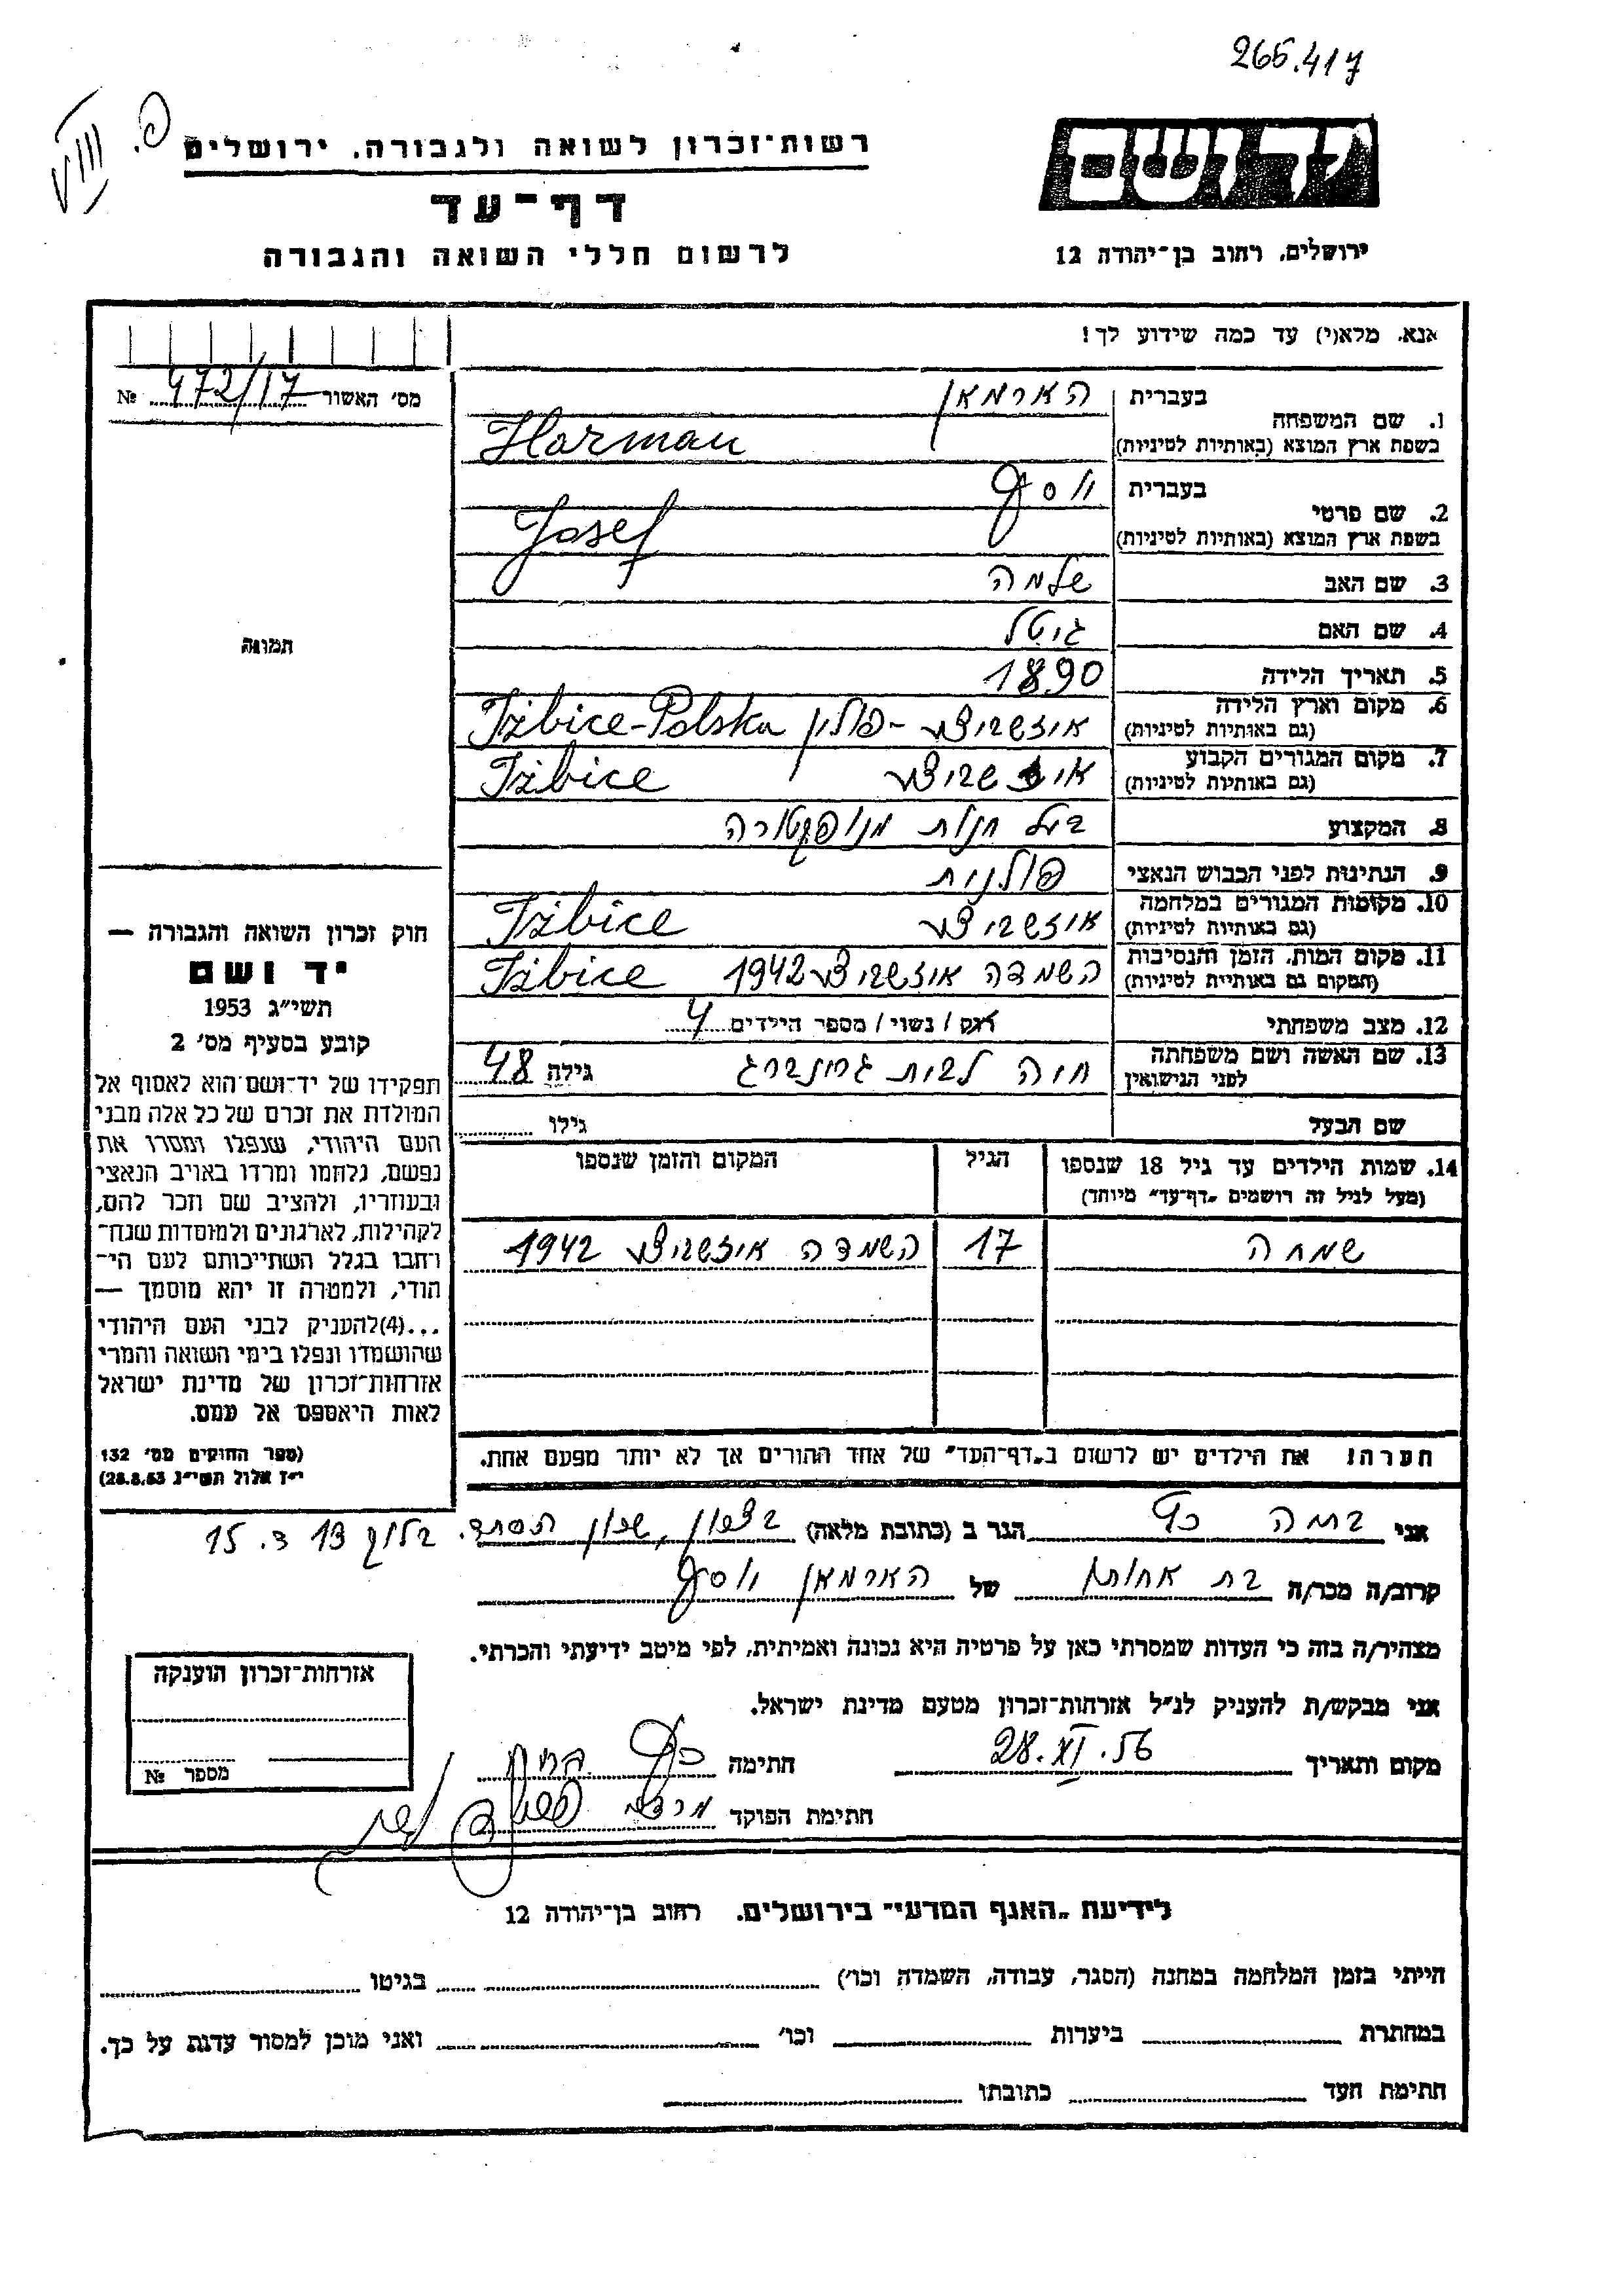 265.417
פ. VIII
רשות־זכרון לשואה ולגבורה. ירושלים
יד ושם
דף־עד
לרשום חללי השואה והגבורה
ירושלים, רחוב בן־יהודה 12
אנא, מלא(י) עד כמה שידוע לך!
מס׳ האשור 472/17 №
בעברית הארמאן
1. שם המשפחה
בשפת ארץ המוצא (באותיות לטיניות) Harman
בעברית יוסף
2. שם פרטי
בשפת ארץ המוצא (באותיות לטיניות) Josef
3. שם האב שלמה
4. שם האם גיטל
תמונה
5. תאריך הלידה 1890
6. מקום וארץ הלידה
(גם באותיות לטיניות) איזשביצע - פולין Iżbice-Polska
7. מקום המגורים הקבוע
(גם באותיות לטיניות) איזשביצע Iżbice
8. המקצוע בעל חנות מנופקטורה
9. הנתינות לפני הכבוש הנאצי פולנית
10. מקומות המגורים במלחמה
(גם באותיות לטיניות) איזשביצע Iżbice
11. מקום המות, הזמן והנסיבות
(המקום גם באותיות לטיניות) השמדה איזשביצע 1942 Iżbice
12. מצב משפחתי רוק / נשוי / מספר הילדים 4
13. שם האשה ושם משפחתה
לפני הנישואין חיה לבית גרינברג גילה 48
שם הבעל גילו
14. שמות הילדים עד גיל 18 שנספו הגיל המקום והזמן שנספו
(מעל לגיל זה רושמים „דף־עד” מיוחד)
שמחה 17 השמדה איזשביצע 1942
הערה! את הילדים יש לרשום ב„דף־העד” של אחד ההורים אך לא יותר מפעם אחת.
חוק זכרון השואה והגבורה —
יד ושם
תשי״ג 1953
קובע בסעיף מס׳ 2
תפקידו של יד־ושם הוא לאסוף אל
המולדת את זכרם של כל אלה מבני
העם היהודי, שנפלו ומסרו את
נפשם, נלחמו ומרדו באויב הנאצי
ובעוזריו, ולהציב שם וזכר להם,
לקהילות, לארגונים ולמוסדות שנח־
רבו בגלל השתייכותם לעם הי־
הודי, ולמטרה זו יהא מוסמך —
...(4)להעניק לבני העם היהודי
שהושמדו ונפלו בימי השואה והמרי
אזרחות־זכרון של מדינת ישראל
לאות היאספם אל עמם.
(ספר החוקים מס׳ 132
י״ז אלול תשי״ג 28.8.53)
אני ברמה כף הגר ב (כתובת מלאה) שכון בלוק 13 ד. 15
קרוב/ה מכר/ה בת אחותו של הארמאן יוסף
מצהיר/ה בזה כי העדות שמסרתי כאן על פרטיה היא נכונה ואמיתית, לפי מיטב ידיעתי והכרתי.
אני מבקש/ת להעניק לנ״ל אזרחות־זכרון מטעם מדינת ישראל.
מקום ותאריך 28.XI.56 חתימה כף
חתימת הפוקד
אזרחות־זכרון הוענקה
מספר №
לידיעת „האגף המדעי” בירושלים. רחוב בן־יהודה 12
הייתי בזמן המלחמה במחנה (הסגר, עבודה, השמדה וכו׳) בגיטו
במחתרת ביערות וכו׳ ואני מוכן למסור עדות על כך.
חתימת העד כתובתו